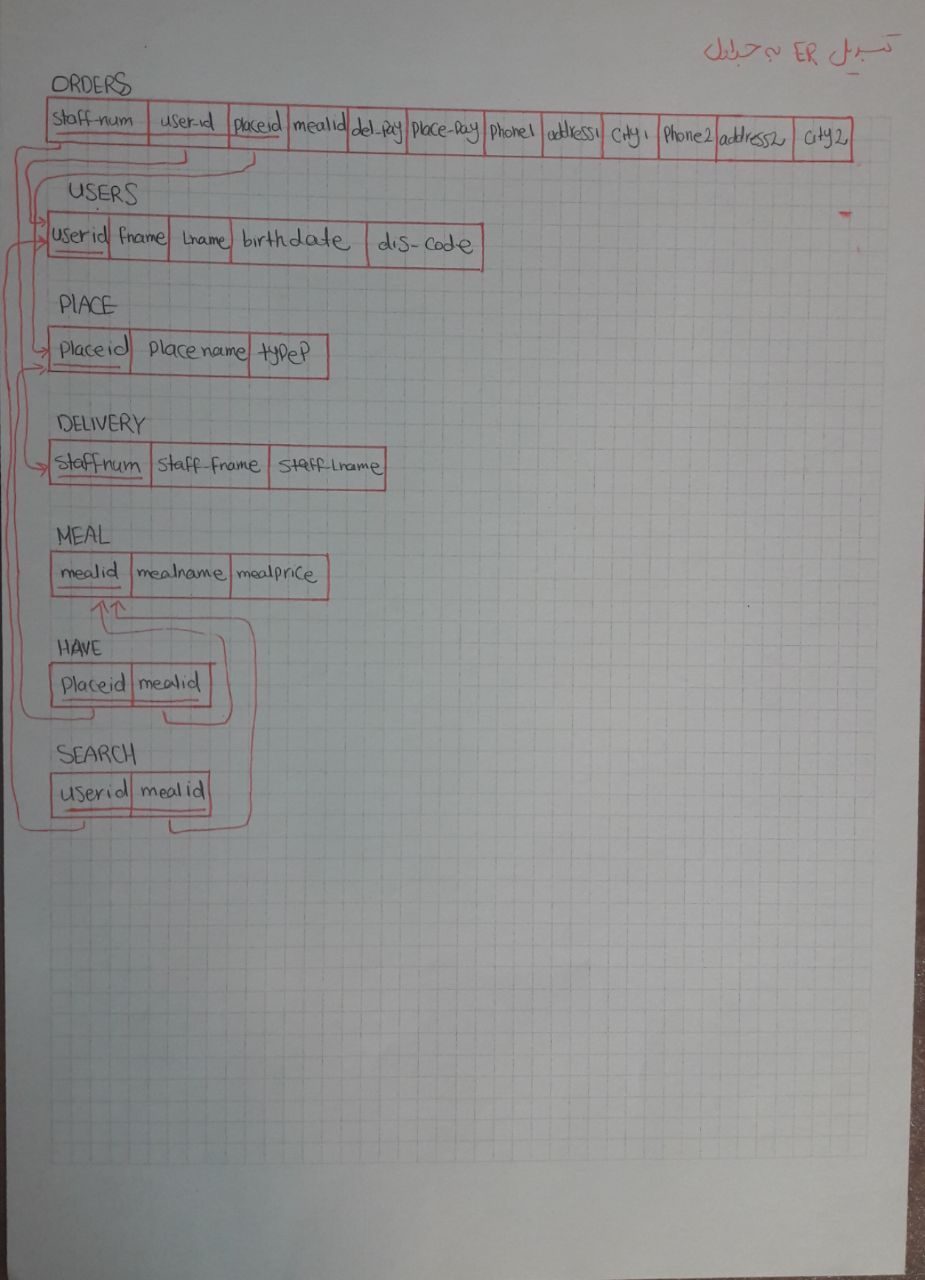 تبدیل ER به جداول
ORDERS
staff-num user-id placeid mealid del-pay place-pay phone1 address1 city1 phone2 address2 city2
USERS
userid fname Lname birthdate dis-code
PLACE
placeid placename typeP
DELIVERY
staffnum staff-fname staff-Lname
MEAL
mealid mealname mealprice
HAVE
placeid mealid
SEARCH
userid mealid